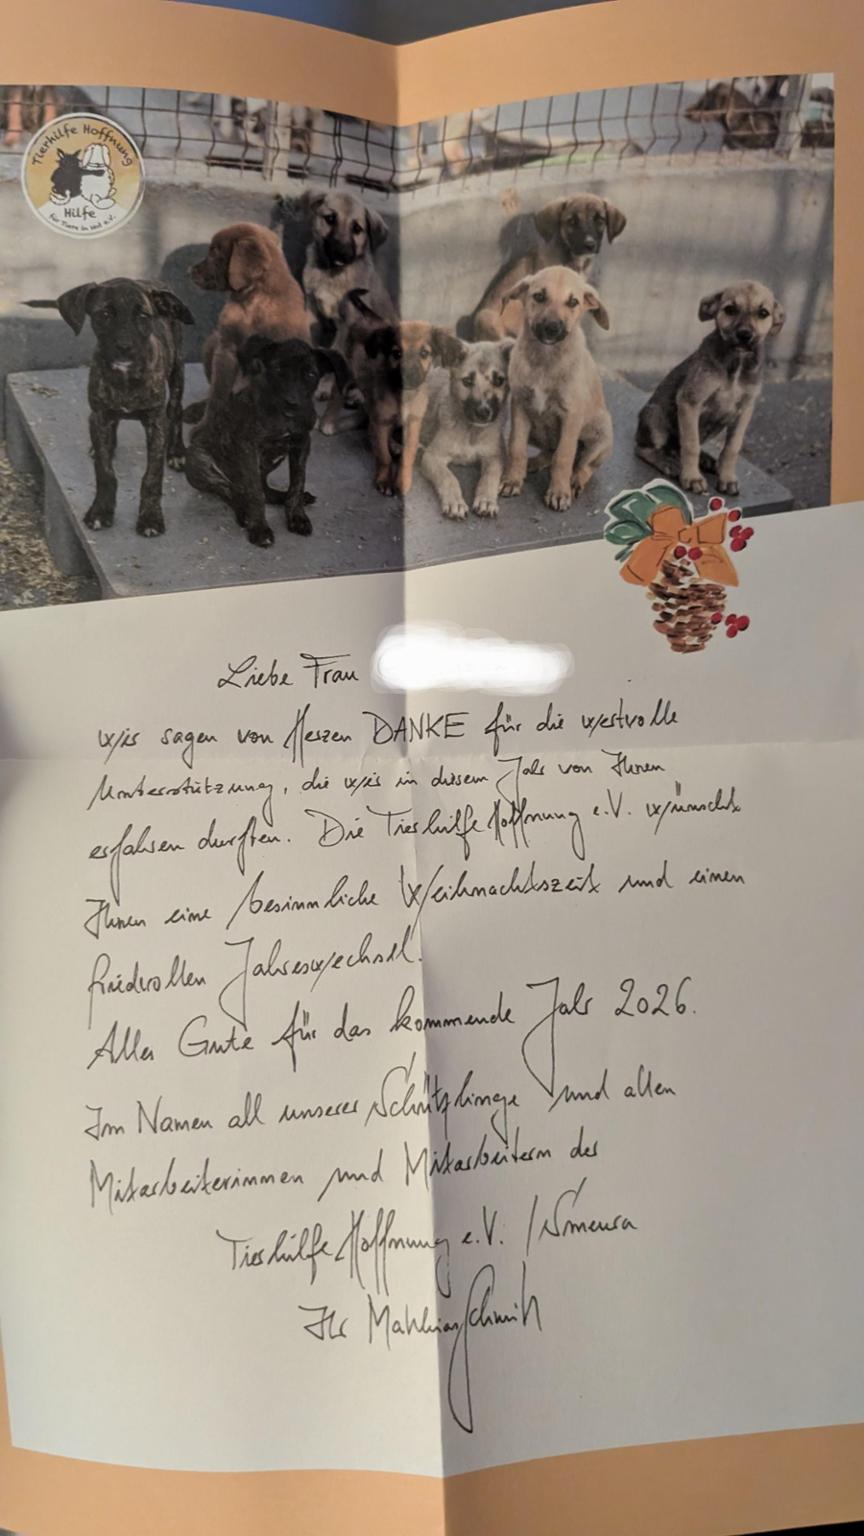 Tierhilfe Hoffnung
Hilfe
für Tiere in Not e.V.
Liebe Frau
wir sagen von Herzen DANKE für die wertvolle
Unterstützung, die wir in diesem Jahr von Ihnen
erfahren durften. Die Tierhilfe Hoffnung e.V. wünscht
Ihnen eine besinnliche Weihnachtszeit und einen
friedvollen Jahreswechsel.
Alles Gute für das kommende Jahr 2026.
Im Namen all unserer Schützlinge und allen
Mitarbeiterinnen und Mitarbeitern der
Tierhilfe Hoffnung e.V. / Smeura
Ihr Matthias Schmidt